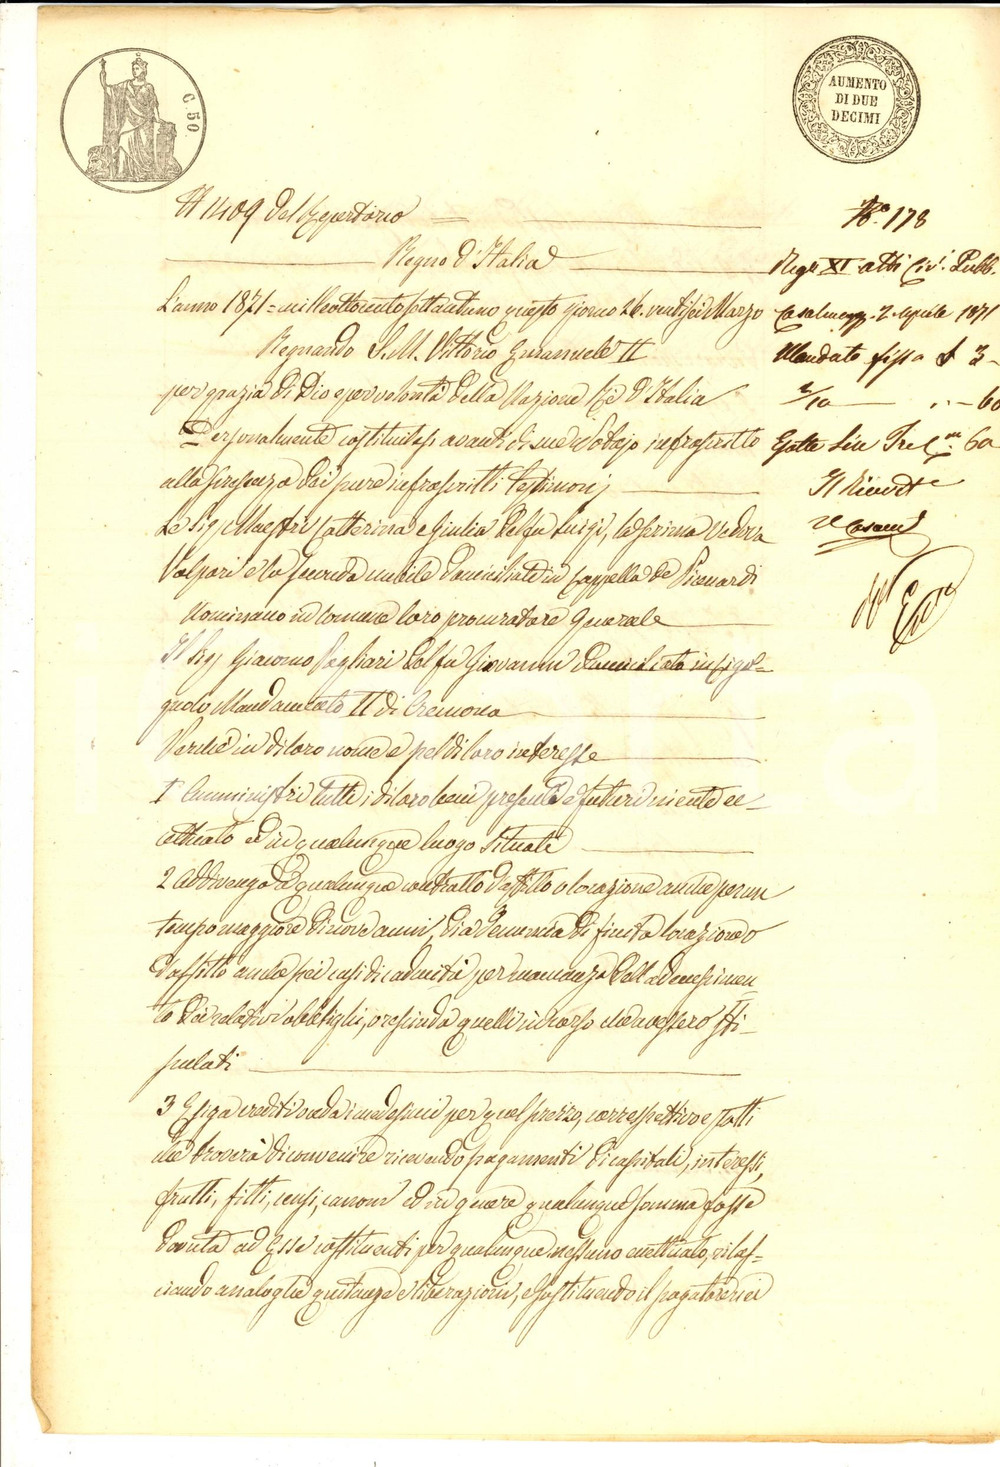 C. 50
AUMENTO
DI DUE
DECIMI
N 1409 del Repertorio
Regno d'Italia
L'anno 1871 = mille ottocento settantuno questo giorno 26. ventisei Marzo
Regnando S. M. Vittorio Emanuele II
per grazia di Dio e per volontà della Nazione Re d'Italia
Personalmente costituitesi avanti di me Notajo infrascritto
alla presenza dei pure infrascritti testimonj
Le Sig. Maestri Catterina e Giulia del fu Luigi, la prima Vedova
Volpari e la seconda nubile domiciliate in Cappella de Picenardi
Nominano in comune loro procuratore Generale
Il Sig. Giacomo Pagliari del fu Giovanni domiciliato in
Mandamento II di Cremona
Perchè in di loro nome e pel di loro interesse
1° Amministri tutti i di loro beni presenti e futuri niente ec-
cettuato ed in qualunque luogo situati
2 Addivenga a qualunque contratto d'affitto o locazione anche per un
tempo maggiore di nove anni, dia denuncia di finita locazione o
d'affitto anche pei casi di caducità per mancanza dell'adempimen-
to dei relativi obblighi, o rescinda quelli in corso che avessero sti-
pulati
3 Esiga crediti ceda i medesimi per quel prezzo, correspettivo e patti
che troverà di convenire ricevendo pagamenti di capitali, interessi,
frutti, fitti, censi, canoni ed in genere qualunque somma fosse
dovuta ad Esse costituenti per qualunque nessuno eccettuato, rilas-
ciando analoghe quitanze e liberazioni, e sostituendo il pagatore nei
N.° 178
Reg.° XI atti Civ. Pubb.
2 Aprile 1871
Mandato fisso £ 3 -
2/10 .. - 60
Esatte Lire Tre C.mi 60
Il Ricevit.e